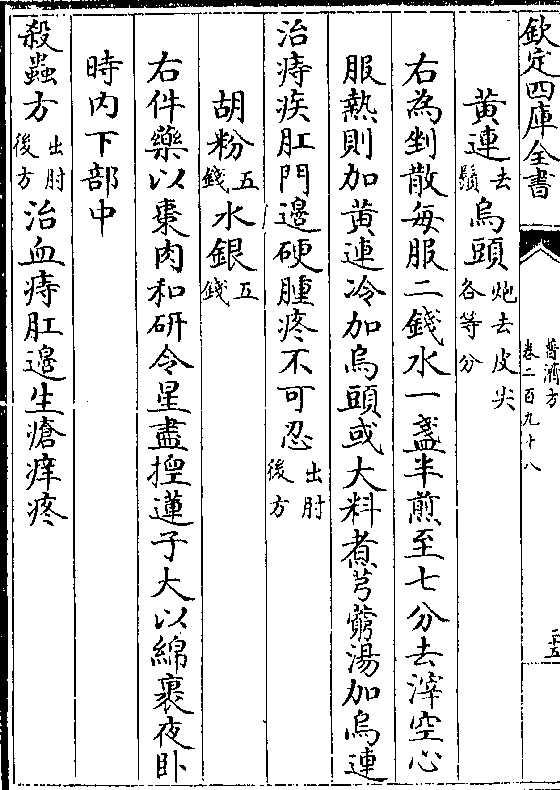 欽定四庫全書
普濟方
卷二百九十八
三五
黄連去鬚烏頭炮去皮尖各等分
右為剉散每服二錢水一盞半煎至七分去滓空心
服熱則加黄連冷加烏頭或大料煮芎藭湯加烏連
治痔疾肛門邊硬腫疼不可忍出肘後方
胡粉五錢水銀五錢
右件藥以棗肉和研令星盡揑蓮子大以綿裹夜卧
時内下部中
殺蟲方出肘後方治血痔肛邊生瘡痒疼